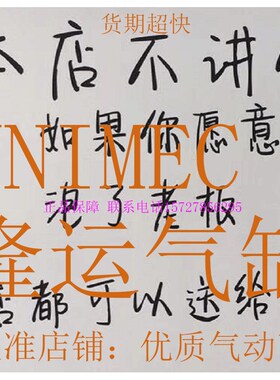 货期超快
本店不讲
如果你愿意
UNIMEC
泡了老板
正品保障 联系电话
隆运气缸
店都可以送给
准店铺：优质气动